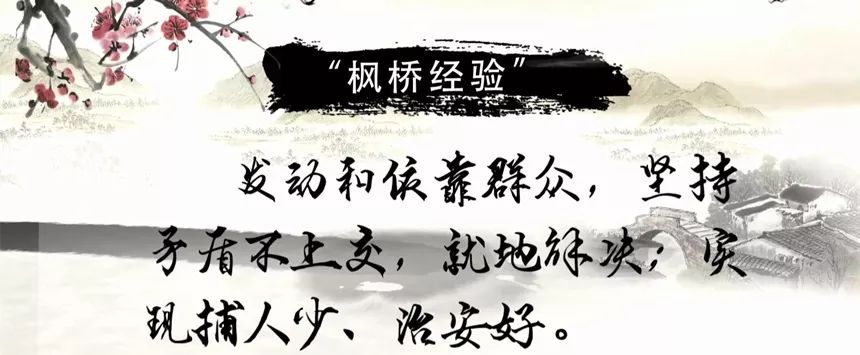 “枫桥经验”
发动和依靠群众，坚持
矛盾不上交，就地解决；实
现捕人少、治安好。